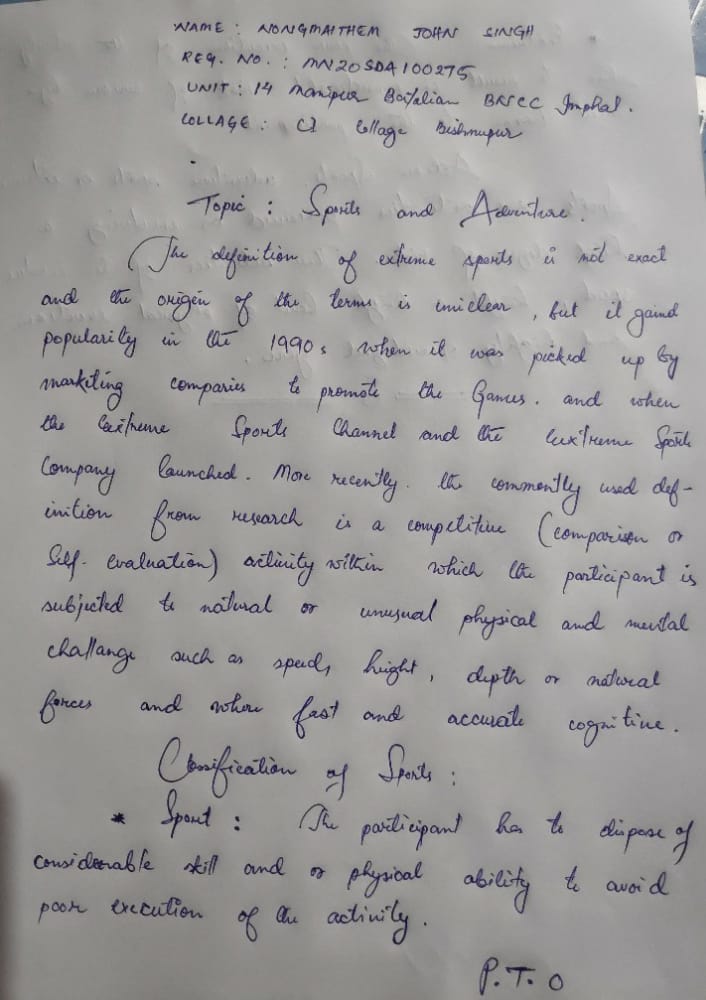 NAME : NONGMAITHEM JOHN SINGH
REG. NO. : MN20SDA100275
UNIT : 14 Manipur Battalian BNCC Imphal.
COLLAGE : CI Collage Bishnupur
Topic : Sports and Adventure.
The definition of extreme sports is not exact
and the origin of the terms is unclear, but it gaind
popularity in the 1990s when it was picked up by
markiting companies to promote the Games. and when
the Extreme Sports Channel and the Extreme Sports
Company launched. More recently. the commently used def-
inition from research is a competitive (comparison or
Self-evaluation) activity within which the participant is
subjected to natural or unusual physical and mental
challange such as speed, height, depth or natural
forces and where fast and accurate cognitive.
Classification of Sports :
* Sport : The participant has to dispose of
considerable skill and or physical ability to avoid
poor execution of the activity.
P.T.O